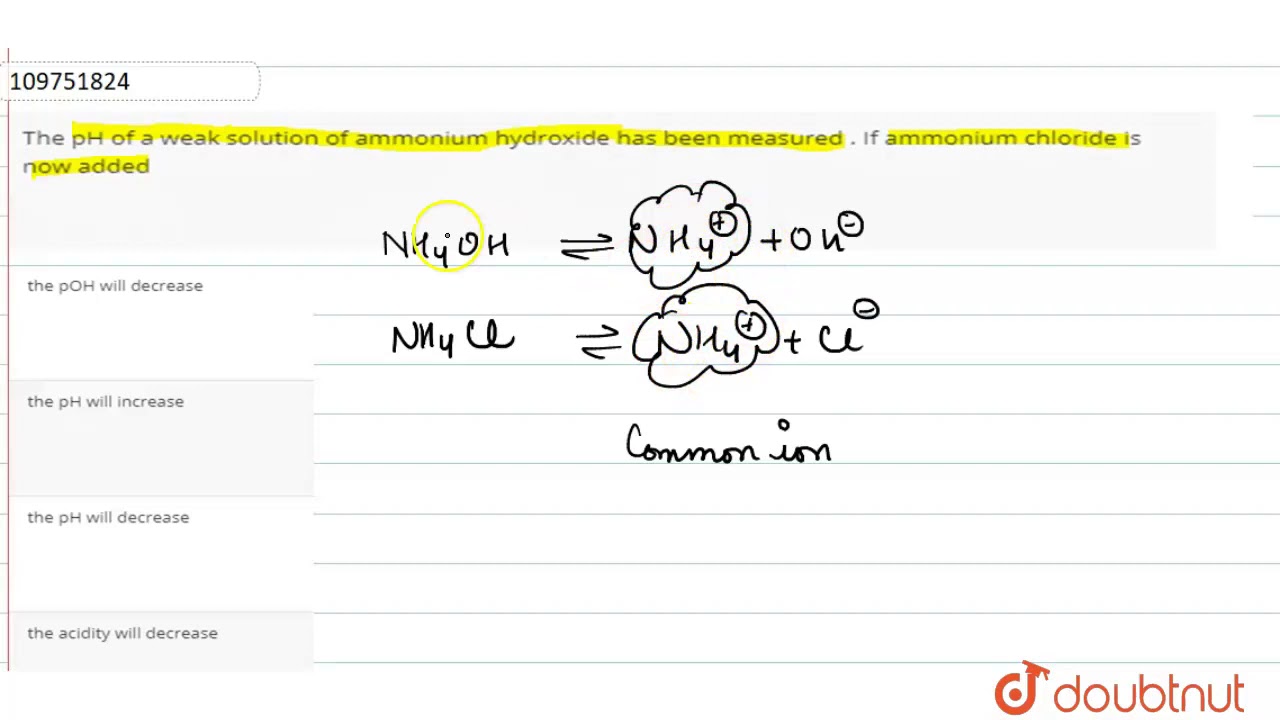 109751824
The pH of a weak solution of ammonium hydroxide has been measured . If ammonium chloride is
now added
NH4OH ⇌ NH4⊕ + OH⊖
the pOH will decrease
NH4Cl ⇌ NH4⊕ + Cl⊖
the pH will increase
Common ion
the pH will decrease
the acidity will decrease
doubtnut